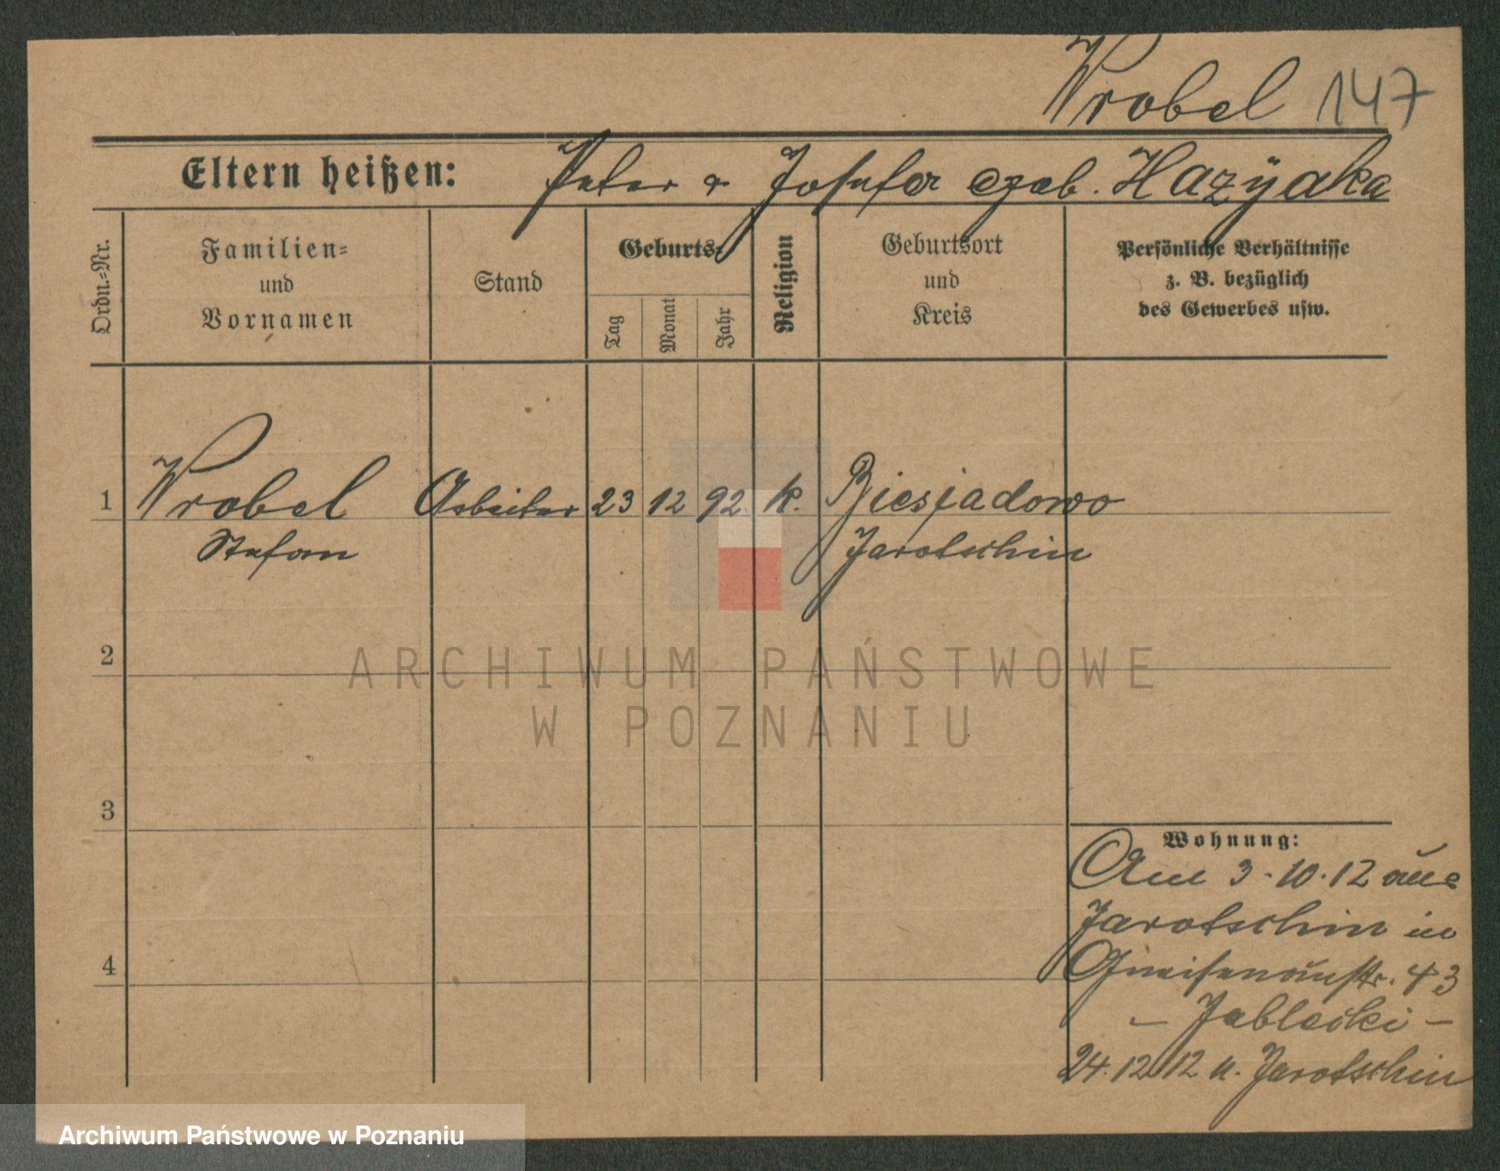 Wrobel 147
Eltern heißen: Peter & Josefa geb. Hazyaka
Ordn.-Nr.
Familien-
und
Vornamen
Stand
Geburts-
Tag
Monat
Jahr
Religion
Geburtsort
und
Kreis
Persönliche Verhältnisse
z. B. bezüglich
des Gewerbes usw.
1 Wrobel Arbeiter 23 12 92 k. Biesiadowo
Stefan Jarotschin
2
ARCHIWUM PAŃSTWOWE
W POZNANIU
3
Wohnung:
Am 3.10.12 aus
Jarotschin in
4
Gneisenaustr. 43
– Jablecki –
24.12.12 n. Jarotschin
Archiwum Państwowe w Poznaniu